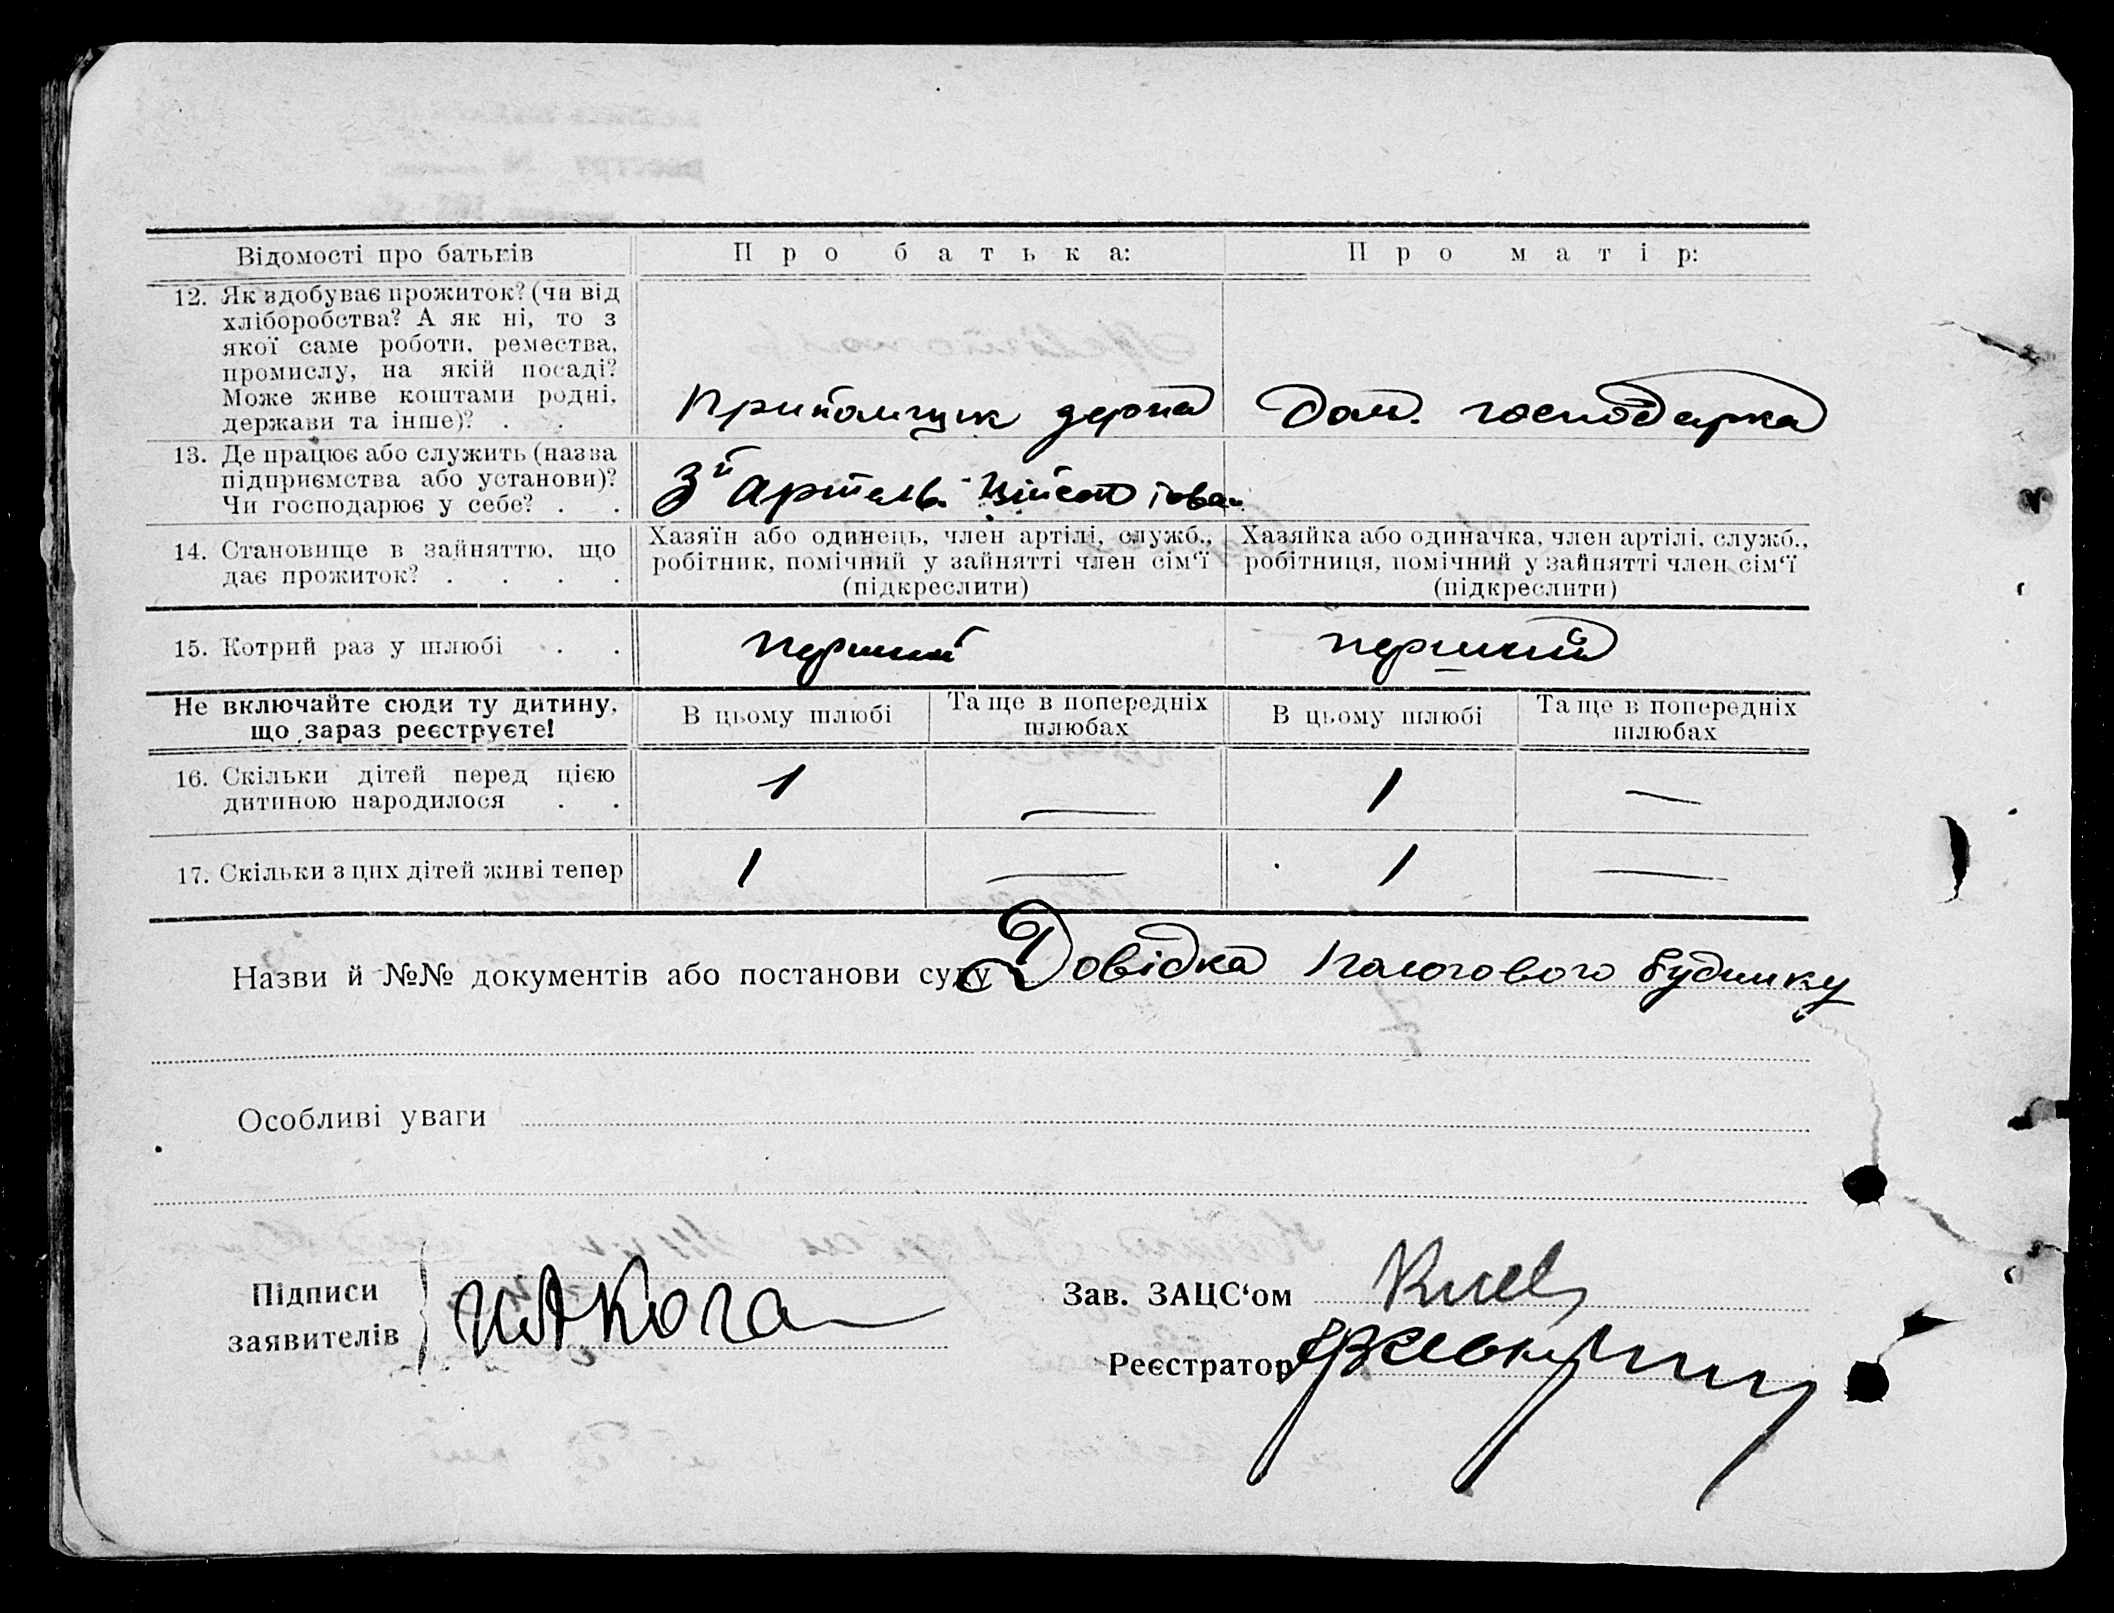 Відомості про батьків
Про батька:
Про матір:
12. Як здобуває прожиток? (чи від
хліборобства? А як ні, то з
якої саме роботи, ремества,
промислу, на якій посаді?
Може живе коштами родні,
держави та інше)? . .
Дом. господарка
13. Де працює або служить (назва
підприємства або установи)?
Чи господарює у себе? . .
3й Артель
14. Становище в зайняттю, що
дає прожиток? . . . .
Хазяїн або одинець, член артілі, служб.,
робітник, помічний у зайнятті член сім'ї
(підкреслити)
Хазяйка або одиначка, член артілі, служб.,
робітниця, помічний у зайнятті член сім'ї
(підкреслити)
15. Котрий раз у шлюбі . .
перший
перший
Не включайте сюди ту дитину,
що зараз реєструєте!
В цьому шлюбі
Та ще в попередніх
шлюбах
В цьому шлюбі
Та ще в попередніх
шлюбах
16. Скільки дітей перед цією
дитиною народилося . .
1
—
1
—
17. Скільки з цих дітей живі тепер
1
—
1
—
Назви й №№ документів або постанови суду Довідка Пологового будинку
Особливі уваги
Підписи
заявителів
Зав. ЗАЦС'ом
Реєстратор